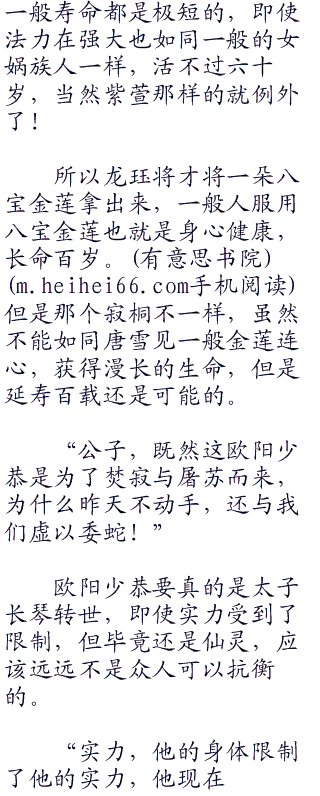 一般寿命都是极短的，即使
法力在强大也如同一般的女
娲族人一样，活不过六十
岁，当然紫萱那样的就例外
了！
所以龙珏将才将一朵八
宝金莲拿出来，一般人服用
八宝金莲也就是身心健康，
长命百岁。(有意思书院)
(m.heihei66.com手机阅读)
但是那个寂桐不一样，虽然
不能如同唐雪见一般金莲连
心，获得漫长的生命，但是
延寿百载还是可能的。
“公子，既然这欧阳少
恭是为了焚寂与屠苏而来，
为什么昨天不动手，还与我
们虚以委蛇！”
欧阳少恭要真的是太子
长琴转世，即使实力受到了
限制，但毕竟还是仙灵，应
该远远不是众人可以抗衡
的。
“实力，他的身体限制
了他的实力，他现在